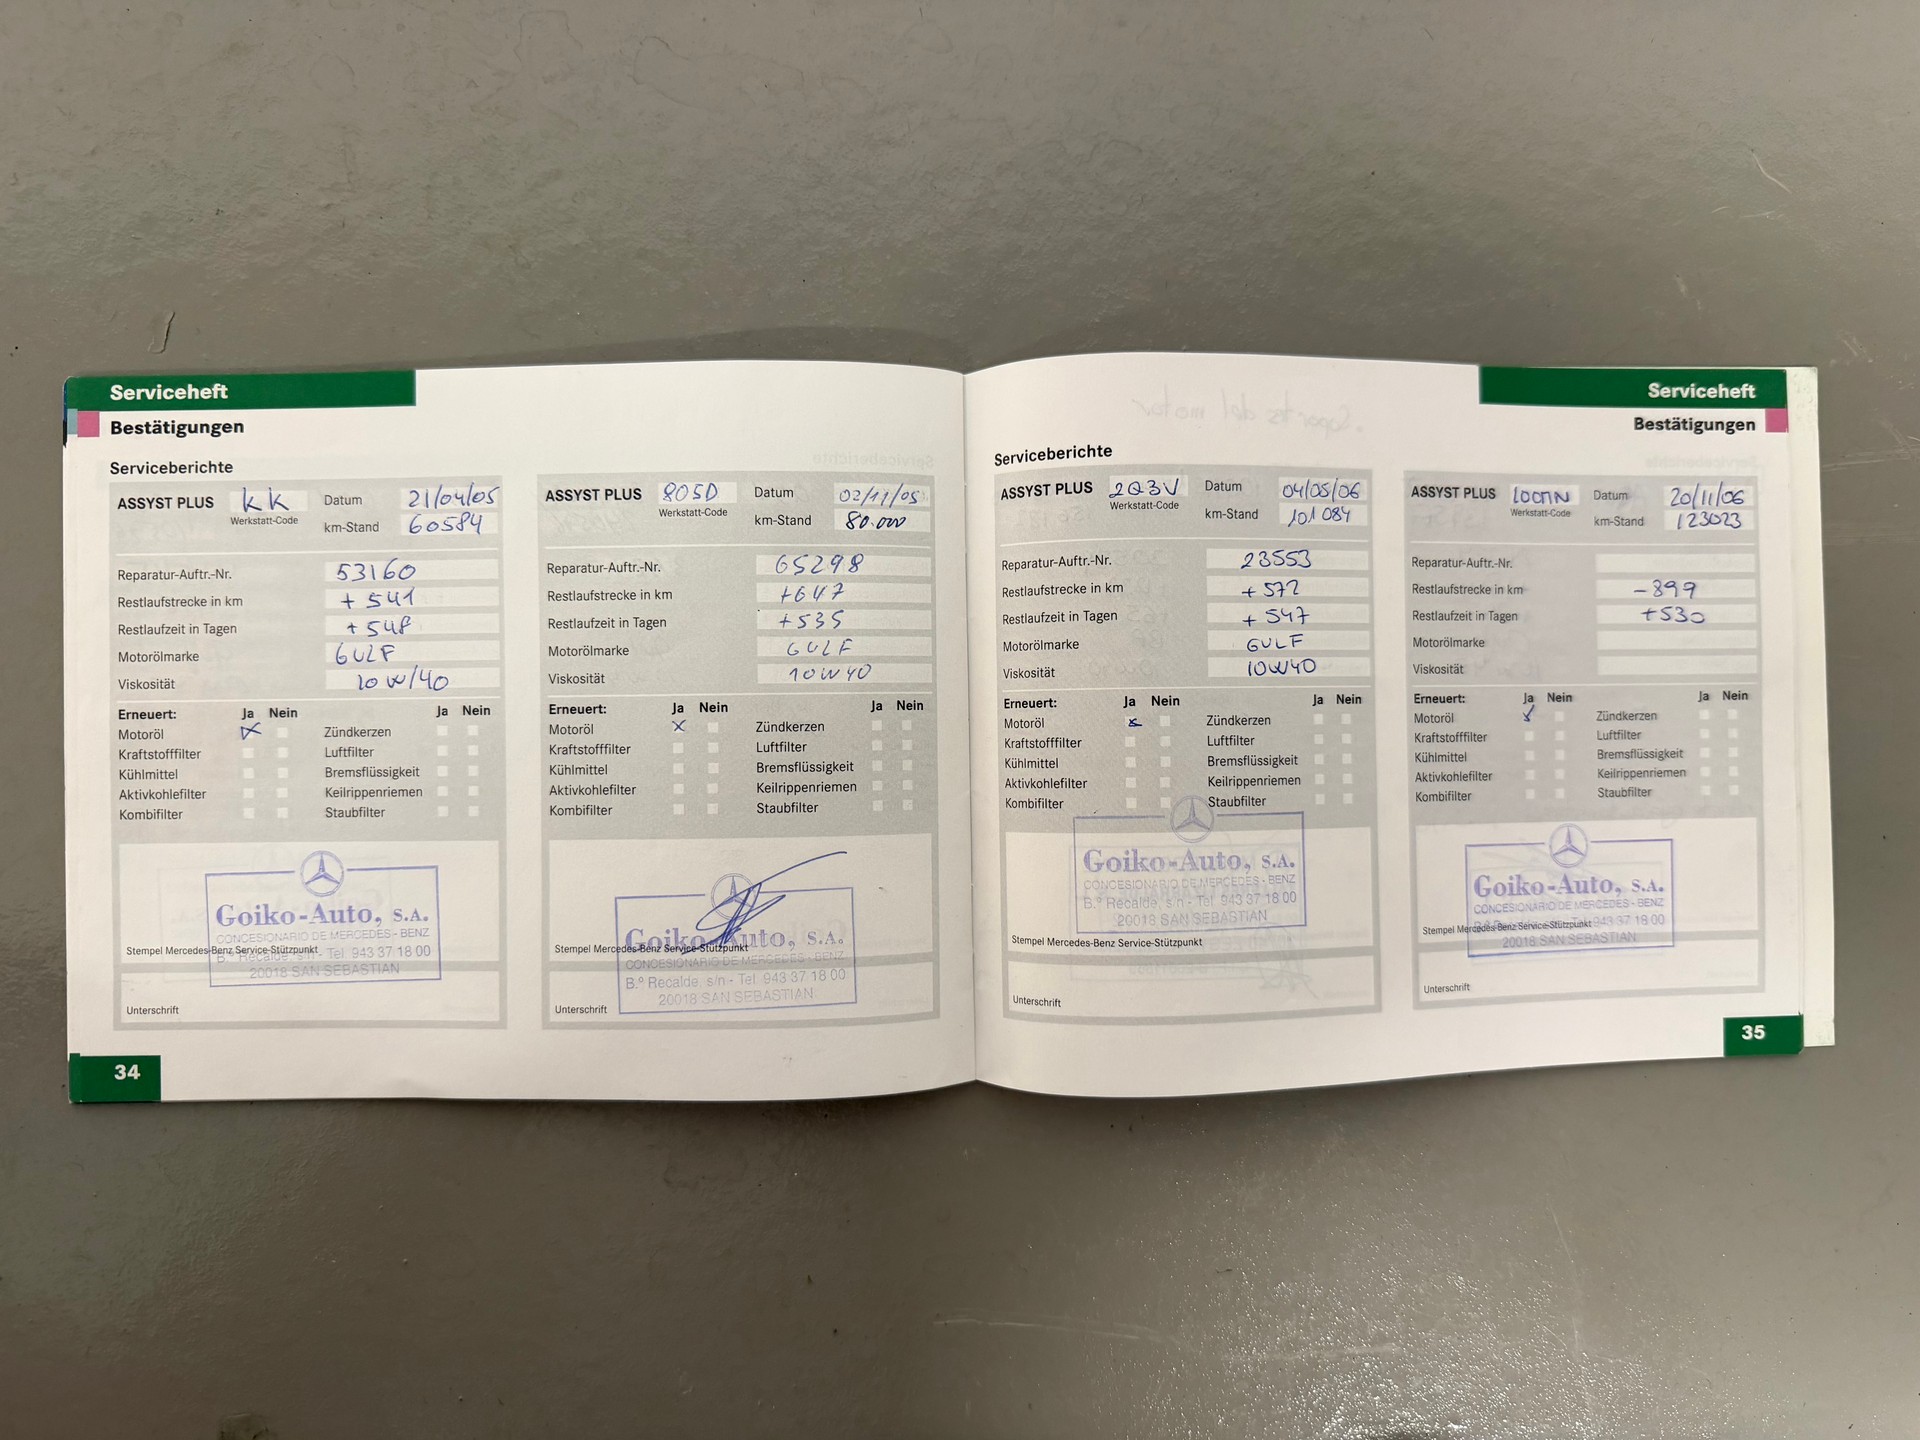 Serviceheft
Bestätigungen
Serviceberichte
ASSYST PLUS KK Datum 21/04/05
Werkstatt-Code km-Stand 60584
Reparatur-Auftr.-Nr. 53160
Restlaufstrecke in km + 541
Restlaufzeit in Tagen + 548
Motorölmarke GULF
Viskosität 10W/40
Erneuert: Ja Nein Ja Nein
Motoröl X Zündkerzen
Kraftstofffilter Luftfilter
Kühlmittel Bremsflüssigkeit
Aktivkohlefilter Keilrippenriemen
Kombifilter Staubfilter
Goiko-Auto, S.A.
CONCESIONARIO DE MERCEDES - BENZ
Stempel Mercedes-Benz Service-Stützpunkt
B.º Recalde, s/n - Tel. 943 37 18 00
20018 SAN SEBASTIAN
Unterschrift
34
ASSYST PLUS 805D Datum 02/11/05
Werkstatt-Code km-Stand 80.000
Reparatur-Auftr.-Nr. 65298
Restlaufstrecke in km +647
Restlaufzeit in Tagen +535
Motorölmarke GULF
Viskosität 10W40
Erneuert: Ja Nein Ja Nein
Motoröl X Zündkerzen
Kraftstofffilter Luftfilter
Kühlmittel Bremsflüssigkeit
Aktivkohlefilter Keilrippenriemen
Kombifilter Staubfilter
Goiko-Auto, S.A.
Stempel Mercedes-Benz Service-Stützpunkt
CONCESIONARIO DE MERCEDES - BENZ
B.º Recalde, s/n - Tel. 943 37 18 00
20018 SAN SEBASTIAN
Unterschrift
Serviceheft
Bestätigungen
Serviceberichte
ASSYST PLUS 2Q3V Datum 04/05/06
Werkstatt-Code km-Stand 101084
Reparatur-Auftr.-Nr. 23553
Restlaufstrecke in km + 572
Restlaufzeit in Tagen + 547
Motorölmarke GULF
Viskosität 10W40
Erneuert: Ja Nein Ja Nein
Motoröl x Zündkerzen
Kraftstofffilter Luftfilter
Kühlmittel Bremsflüssigkeit
Aktivkohlefilter Keilrippenriemen
Kombifilter Staubfilter
Goiko-Auto, S.A.
CONCESIONARIO DE MERCEDES - BENZ
B.º Recalde, s/n - Tel. 943 37 18 00
20018 SAN SEBASTIAN
Stempel Mercedes-Benz Service-Stützpunkt
Unterschrift
ASSYST PLUS Datum 20/11/06
Werkstatt-Code km-Stand 123023
Reparatur-Auftr.-Nr.
Restlaufstrecke in km -899
Restlaufzeit in Tagen +530
Motorölmarke
Viskosität
Erneuert: Ja Nein Ja Nein
Motoröl Zündkerzen
Kraftstofffilter Luftfilter
Kühlmittel Bremsflüssigkeit
Aktivkohlefilter Keilrippenriemen
Kombifilter Staubfilter
Goiko-Auto, S.A.
CONCESIONARIO DE MERCEDES - BENZ
Stempel Mercedes-Benz Service-Stützpunkt 943 37 18 00
20018 SAN SEBASTIAN
Unterschrift
35